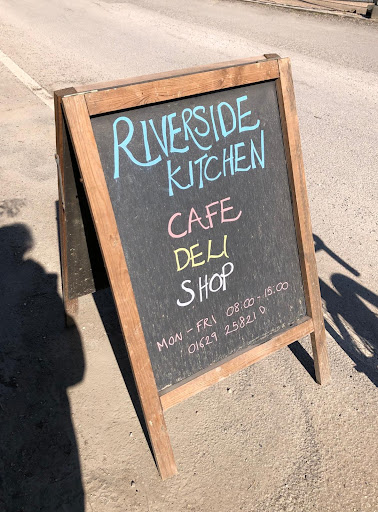 RIVERSIDE
KITCHEN
CAFE
DELI
SHOP
MON - FRI 08:00 - 15:00
01629 258210